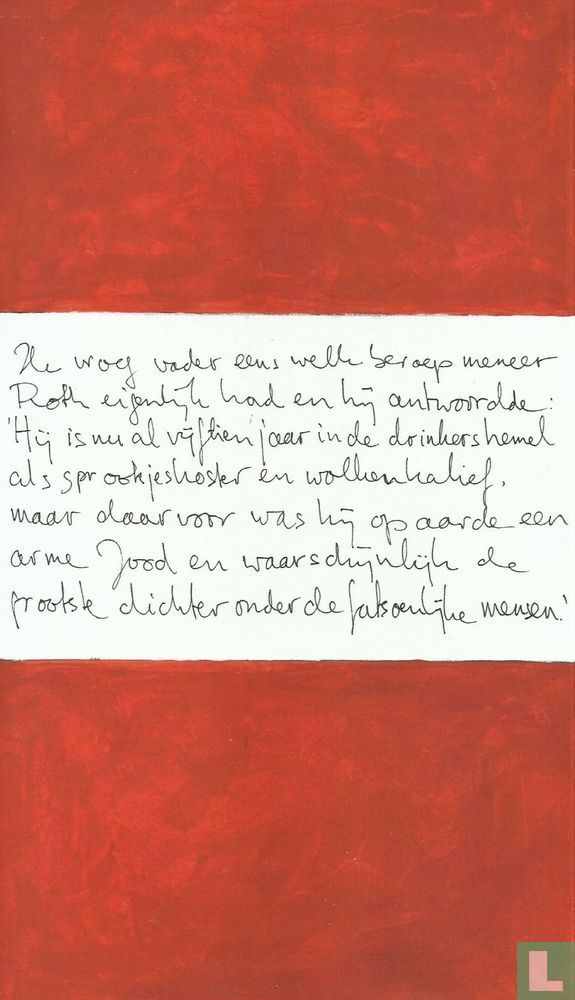 Ik vroeg vader eens welk beroep meneer
Roth eigenlijk had en hij antwoordde:
'Hij is nu al vijftien jaar in de drinkershemel
als sprookjeskoster en wolkenkalief,
maar daarvoor was hij op aarde een
arme Jood en waarschijnlijk de
grootste dichter onder de fatsoenlijke mensen.'
L